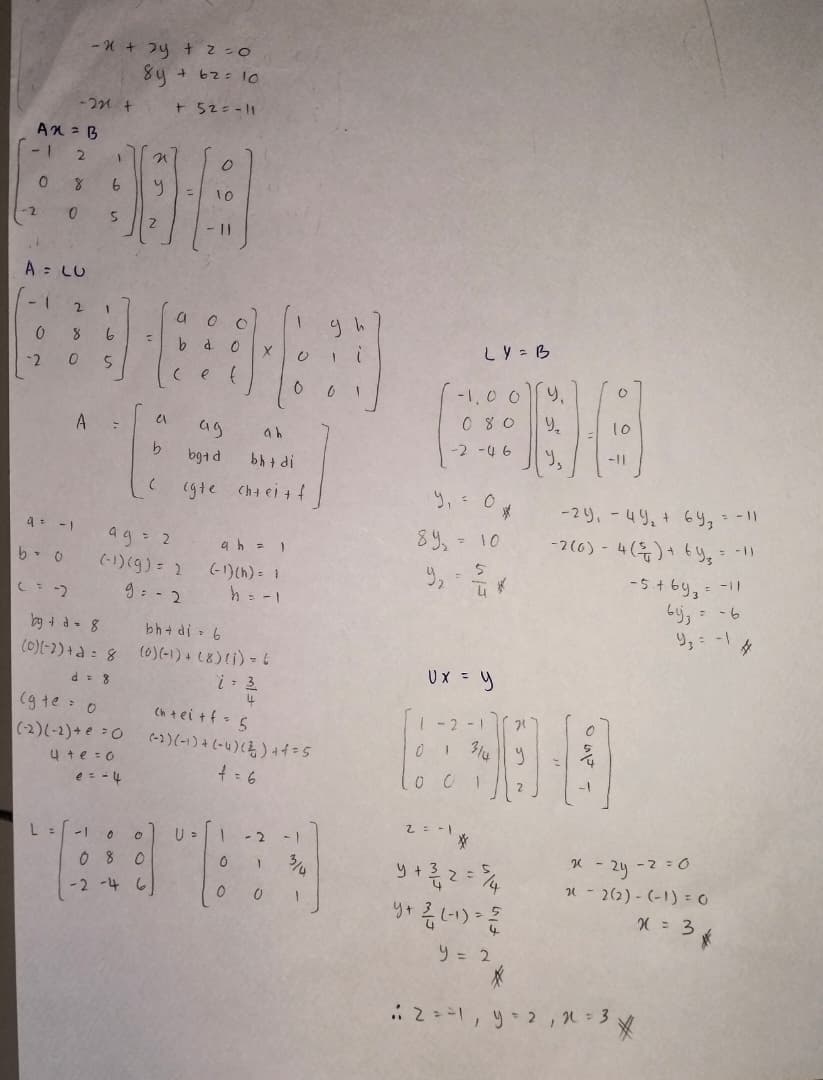 -x + 2y + z = 0
8y + 6z = 10
-2x + + 5z = -11
Ax = B
[-1 2 1; 0 8 6; -2 0 5] [x; y; z] = [0; 10; -11]
A = LU
[-1 2 1; 0 8 6; -2 0 5] = [a 0 0; b d 0; c e f] x [1 g h; 0 1 i; 0 0 1]
A = [a ag ah; b bg+d bh+di; c cg+e ch+ei+f]
a = -1
b = 0
c = -2
ag = 2
(-1)(g) = 2
g = -2
ah = 1
(-1)(h) = 1
h = -1
bg + d = 8
(0)(-2)+d = 8
d = 8
bh + di = 6
(0)(-1) + (8)(i) = 6
i = 3/4
cg + e = 0
(-2)(-2)+e = 0
4 + e = 0
e = -4
ch + ei + f = 5
(-2)(-1) + (-4)(3/4) + f = 5
f = 6
L = [-1 0 0; 0 8 0; -2 -4 6]
U = [1 -2 -1; 0 1 3/4; 0 0 1]
LY = B
[-1 0 0; 0 8 0; -2 -4 6] [y₁; y₂; y₃] = [0; 10; -11]
y₁ = 0
8y₂ = 10
y₂ = 5/4
-2y₁ - 4y₂ + 6y₃ = -11
-2(0) - 4(5/4) + 6y₃ = -11
-5 + 6y₃ = -11
6y₃ = -6
y₃ = -1
Ux = y
[1 -2 -1; 0 1 3/4; 0 0 1] [x; y; z] = [0; 5/4; -1]
z = -1
y + 3/4 z = 5/4
y + 3/4 (-1) = 5/4
y = 2
x - 2y - z = 0
x - 2(2) - (-1) = 0
x = 3
∴ z = -1, y = 2, x = 3